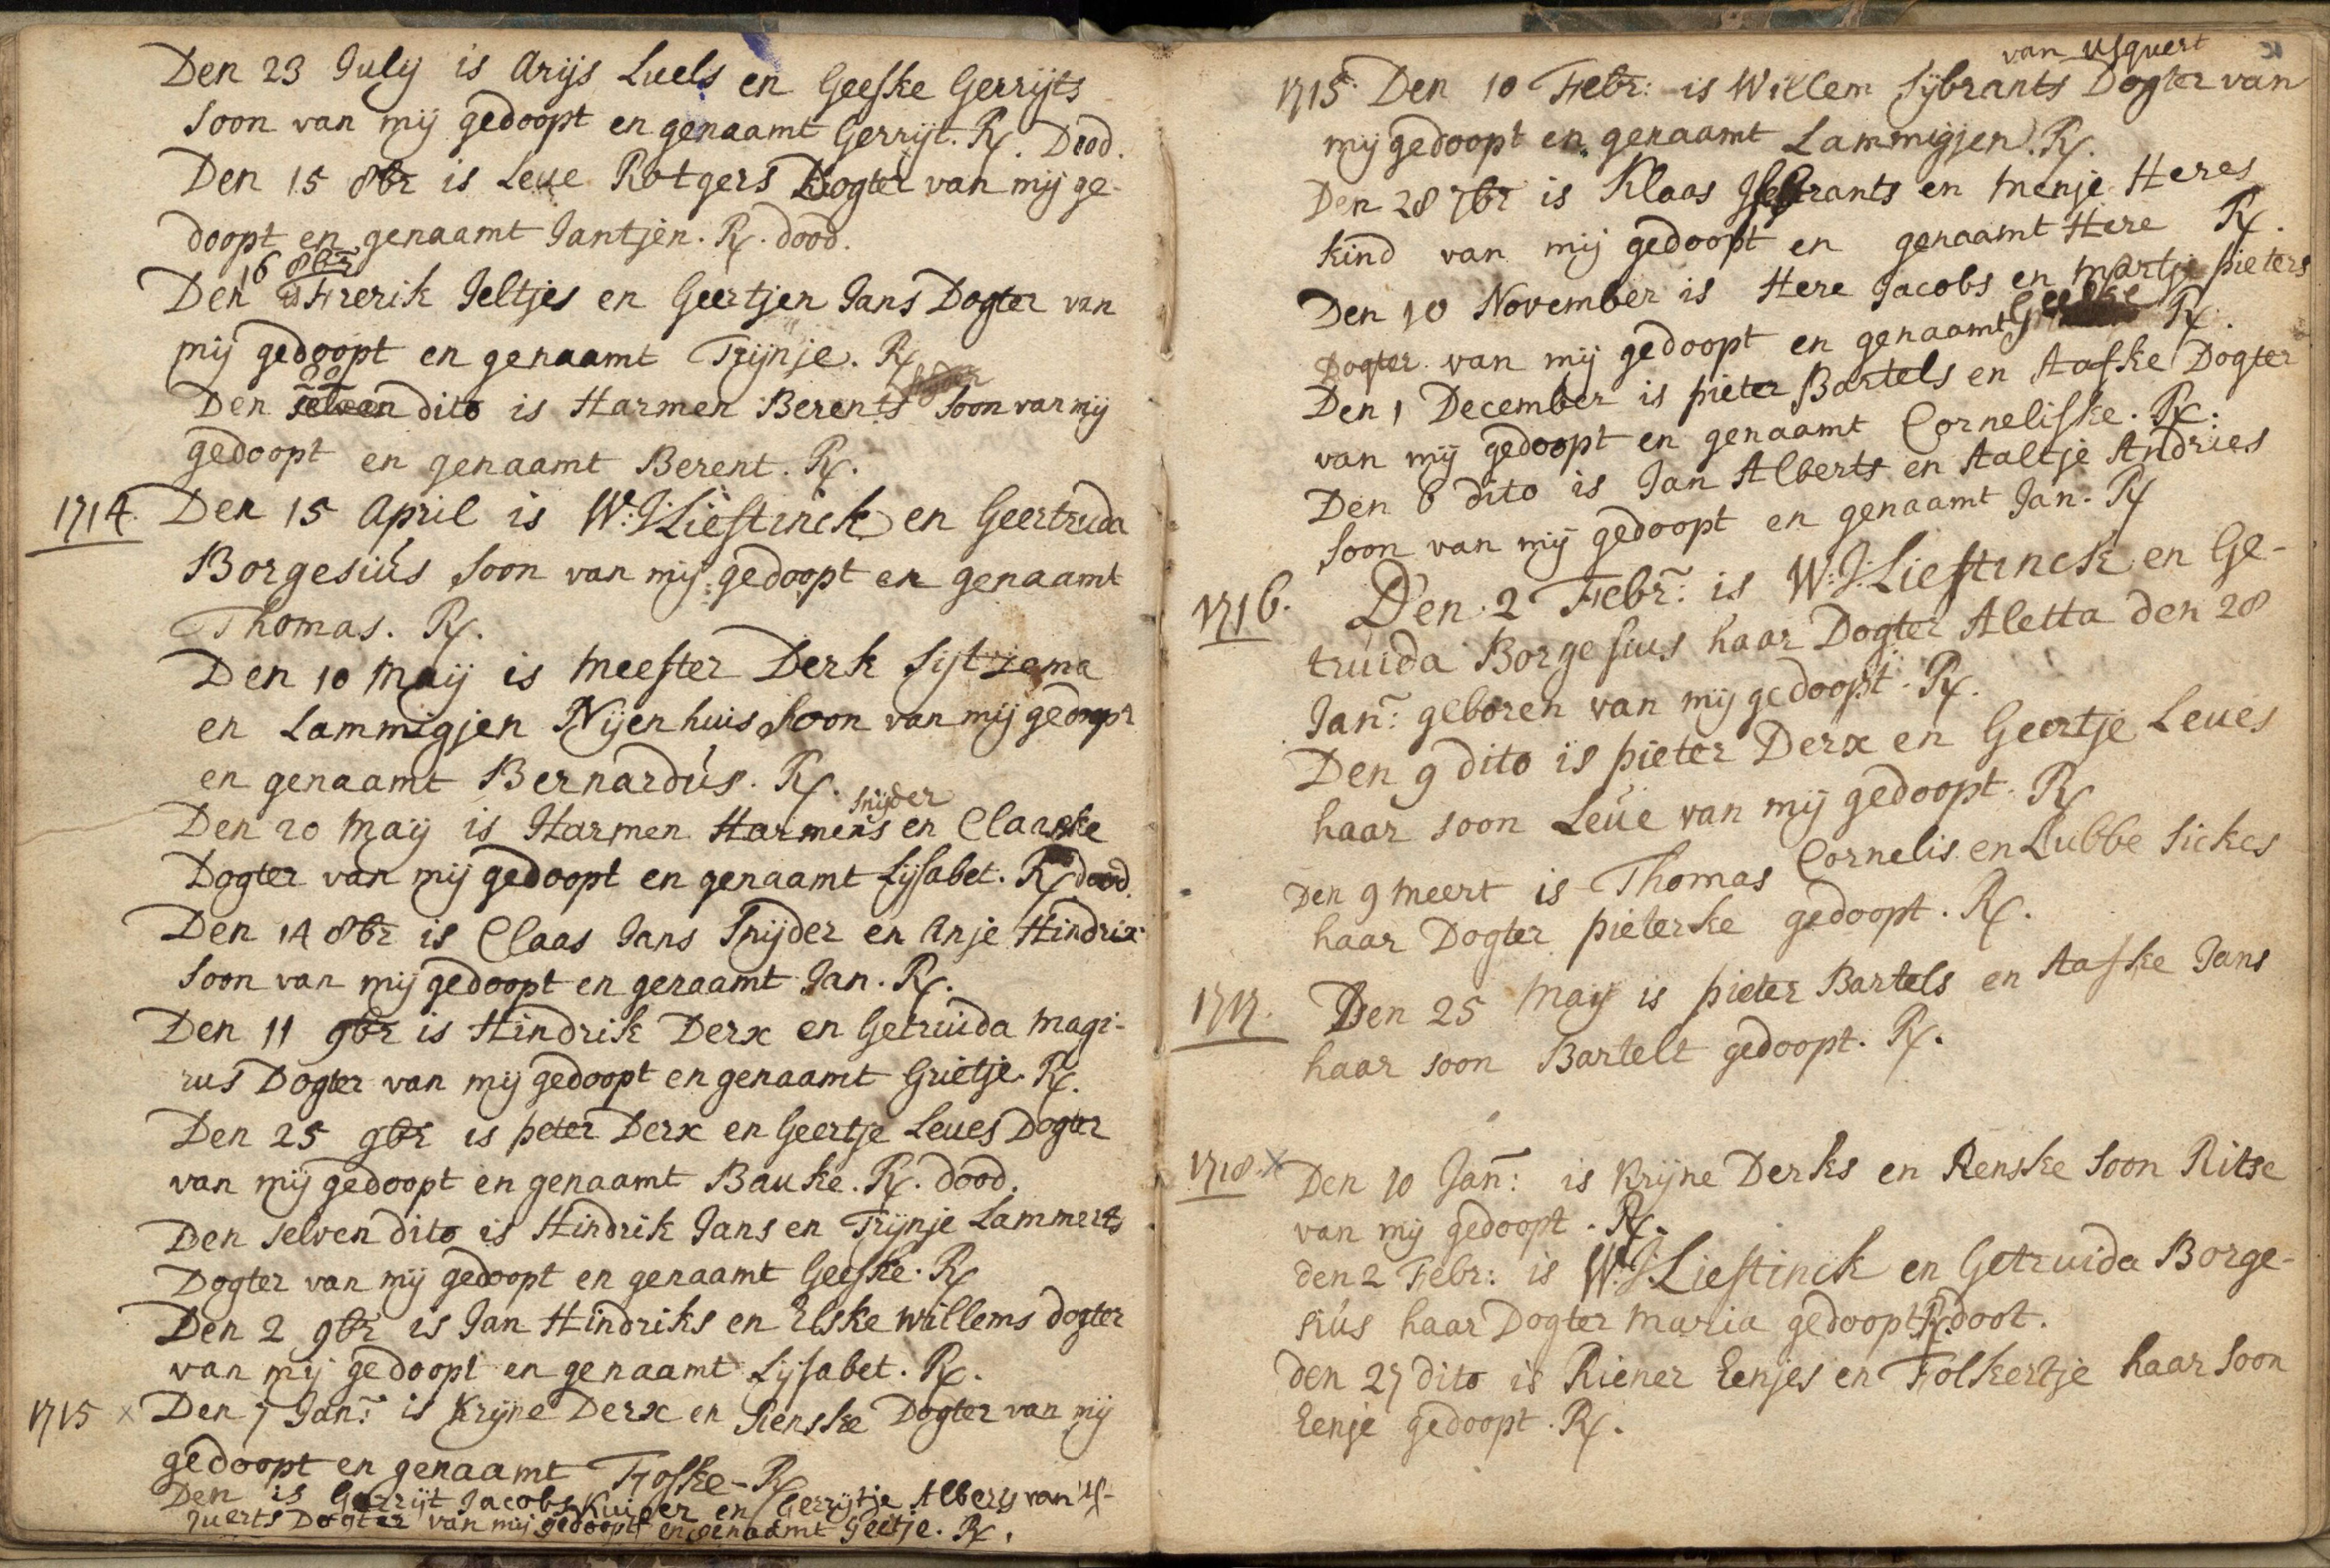 Den 23 July is Arijs Luels en Geeske Gerrijts
Soon van mij gedoopt en genaamt Gerrijt. R. Dood.
Den 15 8br is Leue Rotgers Dogter van mij ge-
doopt en genaamt Jantjen. R. dood.
16 8br
Den is Frerik Jeltjes en Geertjen Jans Dogter van
mij gedoopt en genaamt Trijnje. R.
Den dito is Harmen Berents Soon van mij
gedoopt en genaamt Berent. R.
1714. Den 15 April is W: J: Liestinck en Geertruda
Borgesius Soon van mij gedoopt en genaamt
Thomas. R.
Den 10 Maij is meester Derk Sijtzama
en Lammigjen Nijenhuis Soon van mij gedoopt
en genaamt Bernardus. R.
Snijder
Den 20 Maij is Harmen Harmens en Claaske
Dogter van mij gedoopt en genaamt Lijsabet. R. dood.
Den 14 8br is Claas Jans Snijder en Anje Hindrix
Soon van mij gedoopt en genaamt Jan. R.
Den 11 9br is Hindrik Derx en Getruida Magi-
rus Dogter van mij gedoopt en genaamt Grietje. R.
Den 25 9br is peter Derx en Geertje Leues Dogter
van mij gedoopt en genaamt Bauke. R. dood.
Den selven dito is Hindrik Jans en Trijnje Lammerts
Dogter van mij gedoopt en genaamt Geeske. R
Den 2 9br is Jan Hindriks en Elske Willems dogter
van mij gedoopt en genaamt Lijsabet. R.
1715 x Den 7 Jan: is Krijne Derx en Renske Dogter van mij
gedoopt en genaamt Froske - R
Den is Gerrijt Jacobs Kuiper en Gerrijtje Alberts van Us-
querts Dogter van mij gedoopt en genaamt Geetje. R.
van Usquert
1715. Den 10 Febr: is Willem Sijbrants Dogter van
mij gedoopt en genaamt Lammigjen. R.
Den 28 7br is Klaas Isebrants en Menje Heres
kind van mij gedoopt en genaamt Here R.
Den 10 November is Here Jacobs en Martje pieters
Dogter van mij gedoopt en genaamt Geeske R.
Den 1 December is pieter Bartels en Aafke Dogter
van mij gedoopt en genaamt Corneliske. R.
Den 8 dito is Jan Alberts en Aaltje Andries
Soon van mij gedoopt en genaamt Jan. R
1716. Den 2 Febr: is W: J: Liestinck en Ge-
truida Borgesius haar Dogter Aletta den 28
Jan: geboren van mij gedoopt. R.
Den 9 dito is pieter Derx en Geertje Leues
haar soon Leue van mij gedoopt. R
Den 9 Meert is Thomas Cornelis en Lubbe Sickes
haar Dogter pieterke gedoopt. R.
1717. Den 25 Maij is pieter Bartels en Aafke Jans
haar soon Bartelt gedoopt. R.
1718. x Den 10 Jan: is Krijne Derks en Renske Soon Ritse
van mij gedoopt. R.
den 2 Febr: is W: J: Liestinck en Getruida Borge-
sius haar Dogter Maria gedoopt R. doot.
den 27 dito is Riener Eenjes en Folkertje haar Soon
Eenje gedoopt. R.